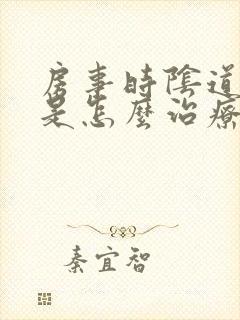 房事時陰道
是怎麼治療
秦宜智